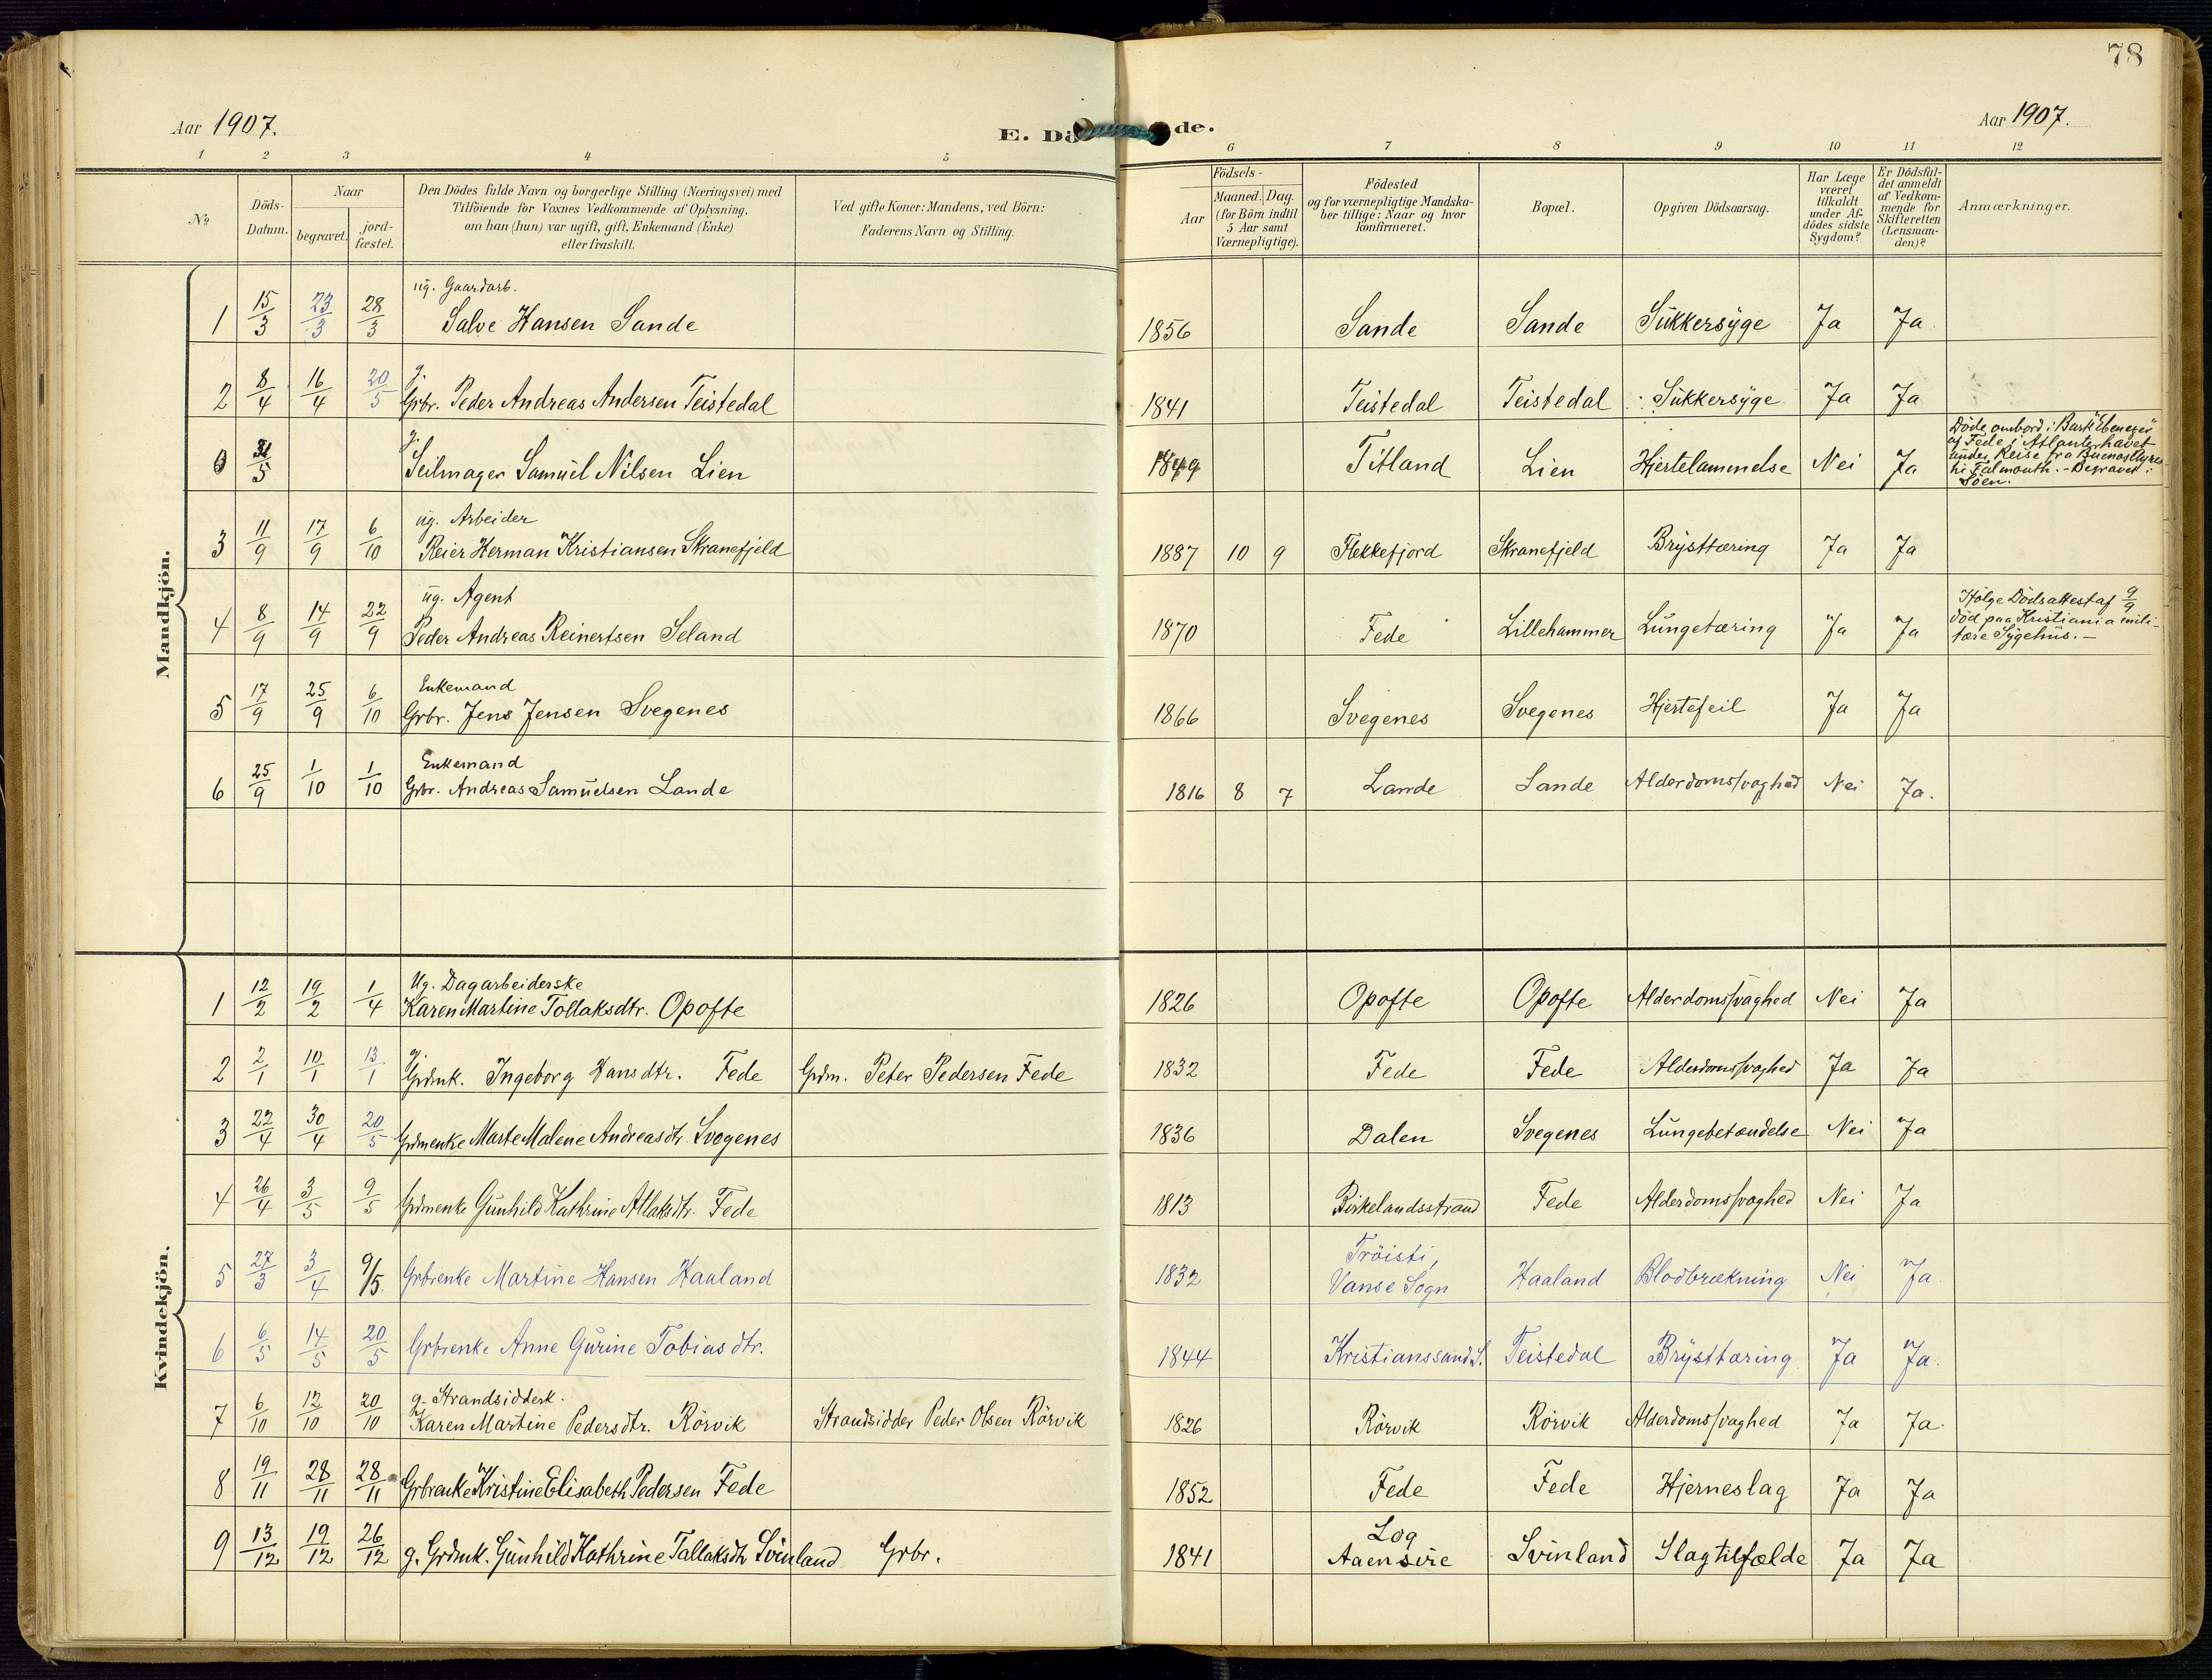 78
Aar 1907.
E. Dö de.
Aar 1907.
1 2 3 4 5 6 7 8 9 10 11 12
No
Döds-Datum.
Naar
begravet.
jord-fæstet.
Den Dödes fulde Navn og borgerlige Stilling (Næringsvei) med
Tilföiende for Voxnes Vedkommende af Oplysning,
om han (hun) var ugift, gift, Enkemand (Enke)
eller fraskilt.
Ved gifte Koner: Mandens, ved Börn:
Faderens Navn og Stilling.
Födsels-
Aar
Maaned. Dag.
(for Börn indtil
5 Aar samt
Værnepligtige).
Födested
og for værnepligtige Mandska-
ber tillige: Naar og hvor
konfirmeret.
Bopæl.
Opgiven Dödsaarsag.
Har Læge
været
tilkaldt
under Af-
dödes sidste
Sygdom?
Er Dödsfal-
det anmeldt
af Vedkom-
mende for
Skifteretten
(Lensman-
den)?
Anmærkninger.
Mandkjön.
ug. Gaardarb.
1 15/3 23/3 28/3 Salve Hansen Sande 1856 Sande Sande Sukkersyge Ja Ja
g.
2 8/4 16/4 20/5 Grbr. Peder Andreas Andersen Teistedal 1841 Teistedal Teistedal Sukkersyge Ja Ja
g.
0 31/5 Seilmager Samuel Nilsen Lien 1849 Titland Lien Hjertelammelse Nei Ja
Döde ombord i Bark "Ebenezer"
af Fede i Atlanterhavet
under Reise fra Buenos Ayres
til Falmouth. - Begravet i
Söen.
ug. Arbeider
3 11/9 17/9 6/10 Reier Herman Kristiansen Skranefjeld 1887 10 9 Flekkefjord Skranefjeld Brysttæring Ja Ja
ug. Agent
4 8/9 14/9 22/9 Peder Andreas Reinertsen Seland 1870 Fede Lillehammer Lungetæring Ja Ja
Ifölge Dödsattest af 9/9
död paa Kristiania mili-
tære Sygehus. -
Enkemand
5 17/9 25/9 6/10 Grbr. Jens Jensen Svegenes 1866 Svegenes Svegenes Hjertefeil Ja Ja
Enkemand
6 25/9 1/10 1/10 Grbr. Andreas Samuelsen Sande 1816 8 7 Sande Sande Alderdomssvaghed Nei Ja.
Kvindekjön.
Ug. Dagarbeiderske
1 12/2 19/2 1/4 Karen Martine Tollaksdtr. Opofte 1826 Opofte Opofte Alderdomssvaghed Nei Ja
g.
2 2/1 10/1 13/1 Grdmk. Ingeborg Hansdtr. Fede Grdm. Peter Pedersen Fede 1832 Fede Fede Alderdomssvaghed Ja Ja
3 22/4 30/4 20/5 Grdmenke Marte Malene Andreasdtr. Svegenes 1836 Dalen Svegenes Lungebetændelse Nei Ja
4 26/4 3/5 9/5 Grdmenke Gunhild Kathrine Atlaksdtr. Fede 1813 Birkelandsstrand Fede Alderdomssvaghed Nei Ja
5 27/3 3/4 9/5. Grbrenke Martine Hansen Haaland 1832 Tröisti,
Vanse Sogn Haaland Blodbrækning Nei Ja
6 6/5 14/5 20/5 Grbrenke Anne Gurine Tobiasdtr. 1844 Kristianssand S. Teistedal Brysttæring Ja Ja.
g. Strandsidderk.
7 6/10 12/10 20/10 Karen Martine Pedersdtr. Rörvik Strandsidder Peder Olsen Rörvik 1826 Rörvik Rörvik Alderdomssvaghed Ja Ja.
8 19/11 28/11 28/11 Grbrenke Kristine Elisabeth Pedersen Fede 1852 Fede Fede Hjerneslag Ja Ja
9 13/12 19/12 26/12 g. Grdmk. Gunhild Kathrine Tallaksdtr Svinland Grbr. 1841 Log
Aaensire Svinland Slagtilfælde Ja Ja